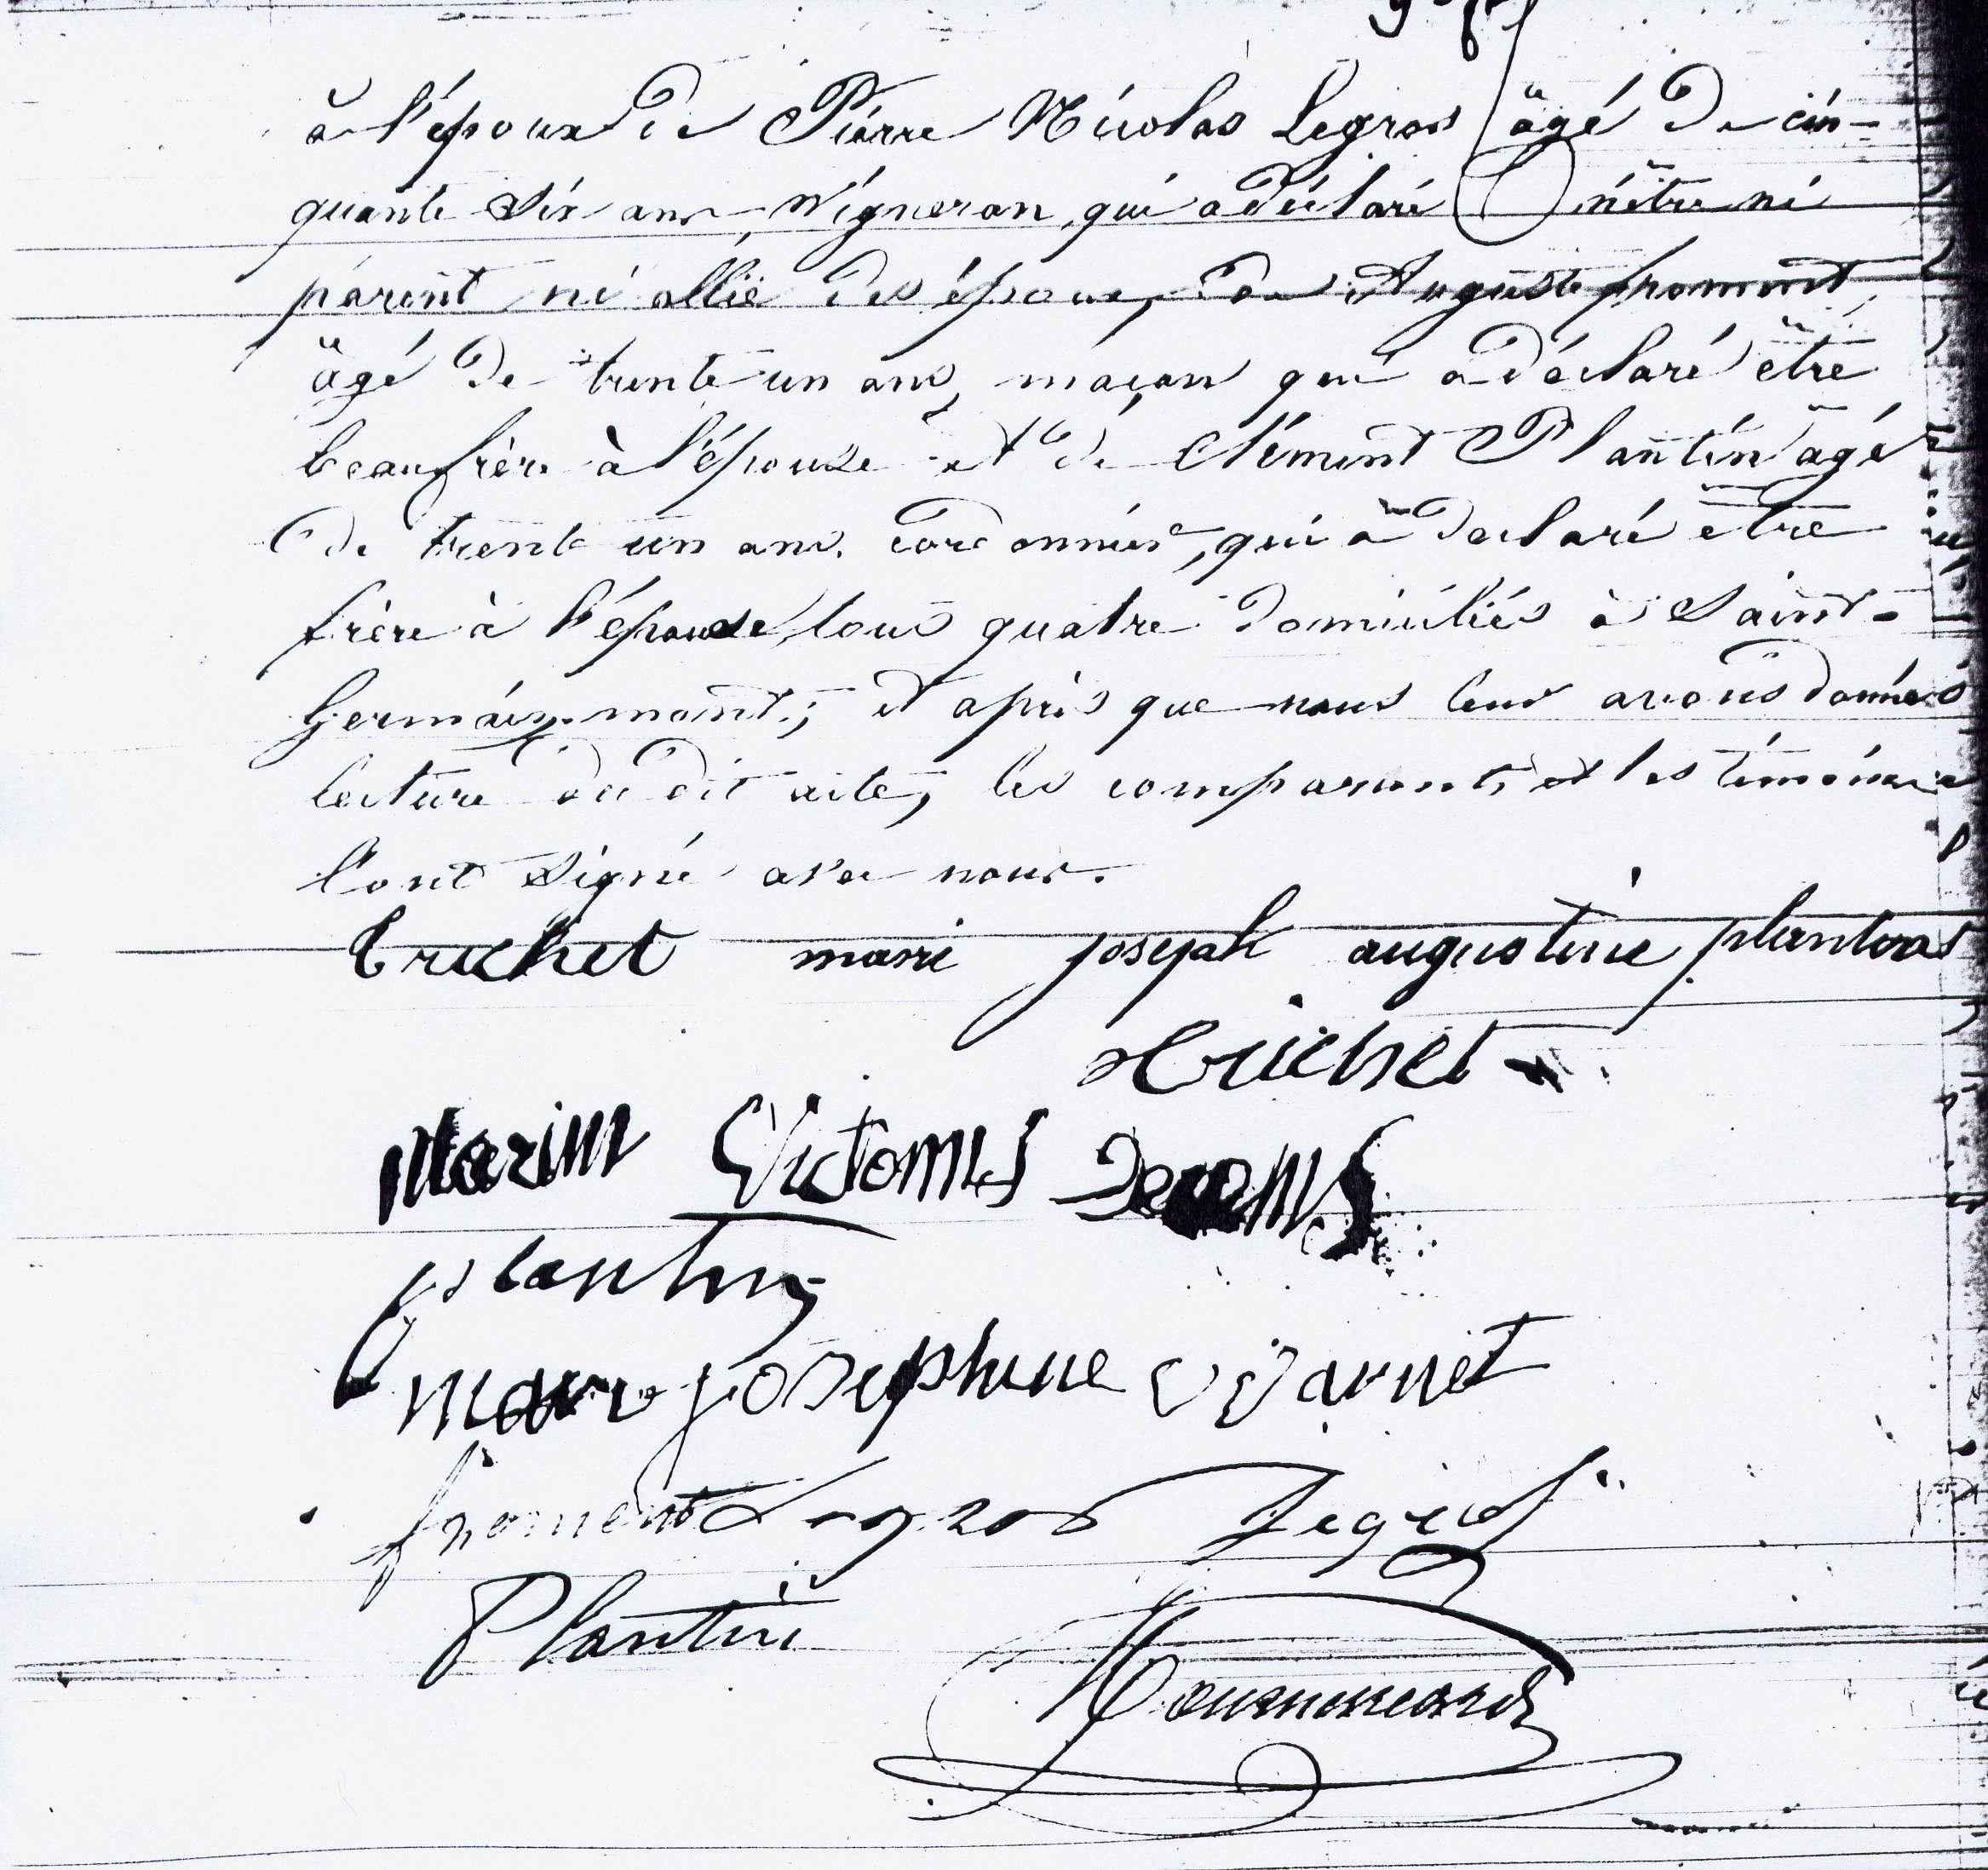 à l'époux de Pierre Nicolas Legros âgé de cin-
quante six ans, vigneron, qui a déclaré n'être ni
parent ni allié des époux, de Auguste froment,
âgé de trente un ans, maçon qui a déclaré être
beaufrère à l'épouse et de Clément Plantin âgé
de trente un ans, cordonnier, qui a déclaré être
frère à l'épouse, tous quatre domiciliés à Saint-
Germainmont; et après que nous leur avons donnés
lecture du dit acte, les comparants et les témoins
l'ont signé avec nous.
truchet marie joseph augustine
truchet
Marin
plantin
josephine
froment Legros Legros
Plantin